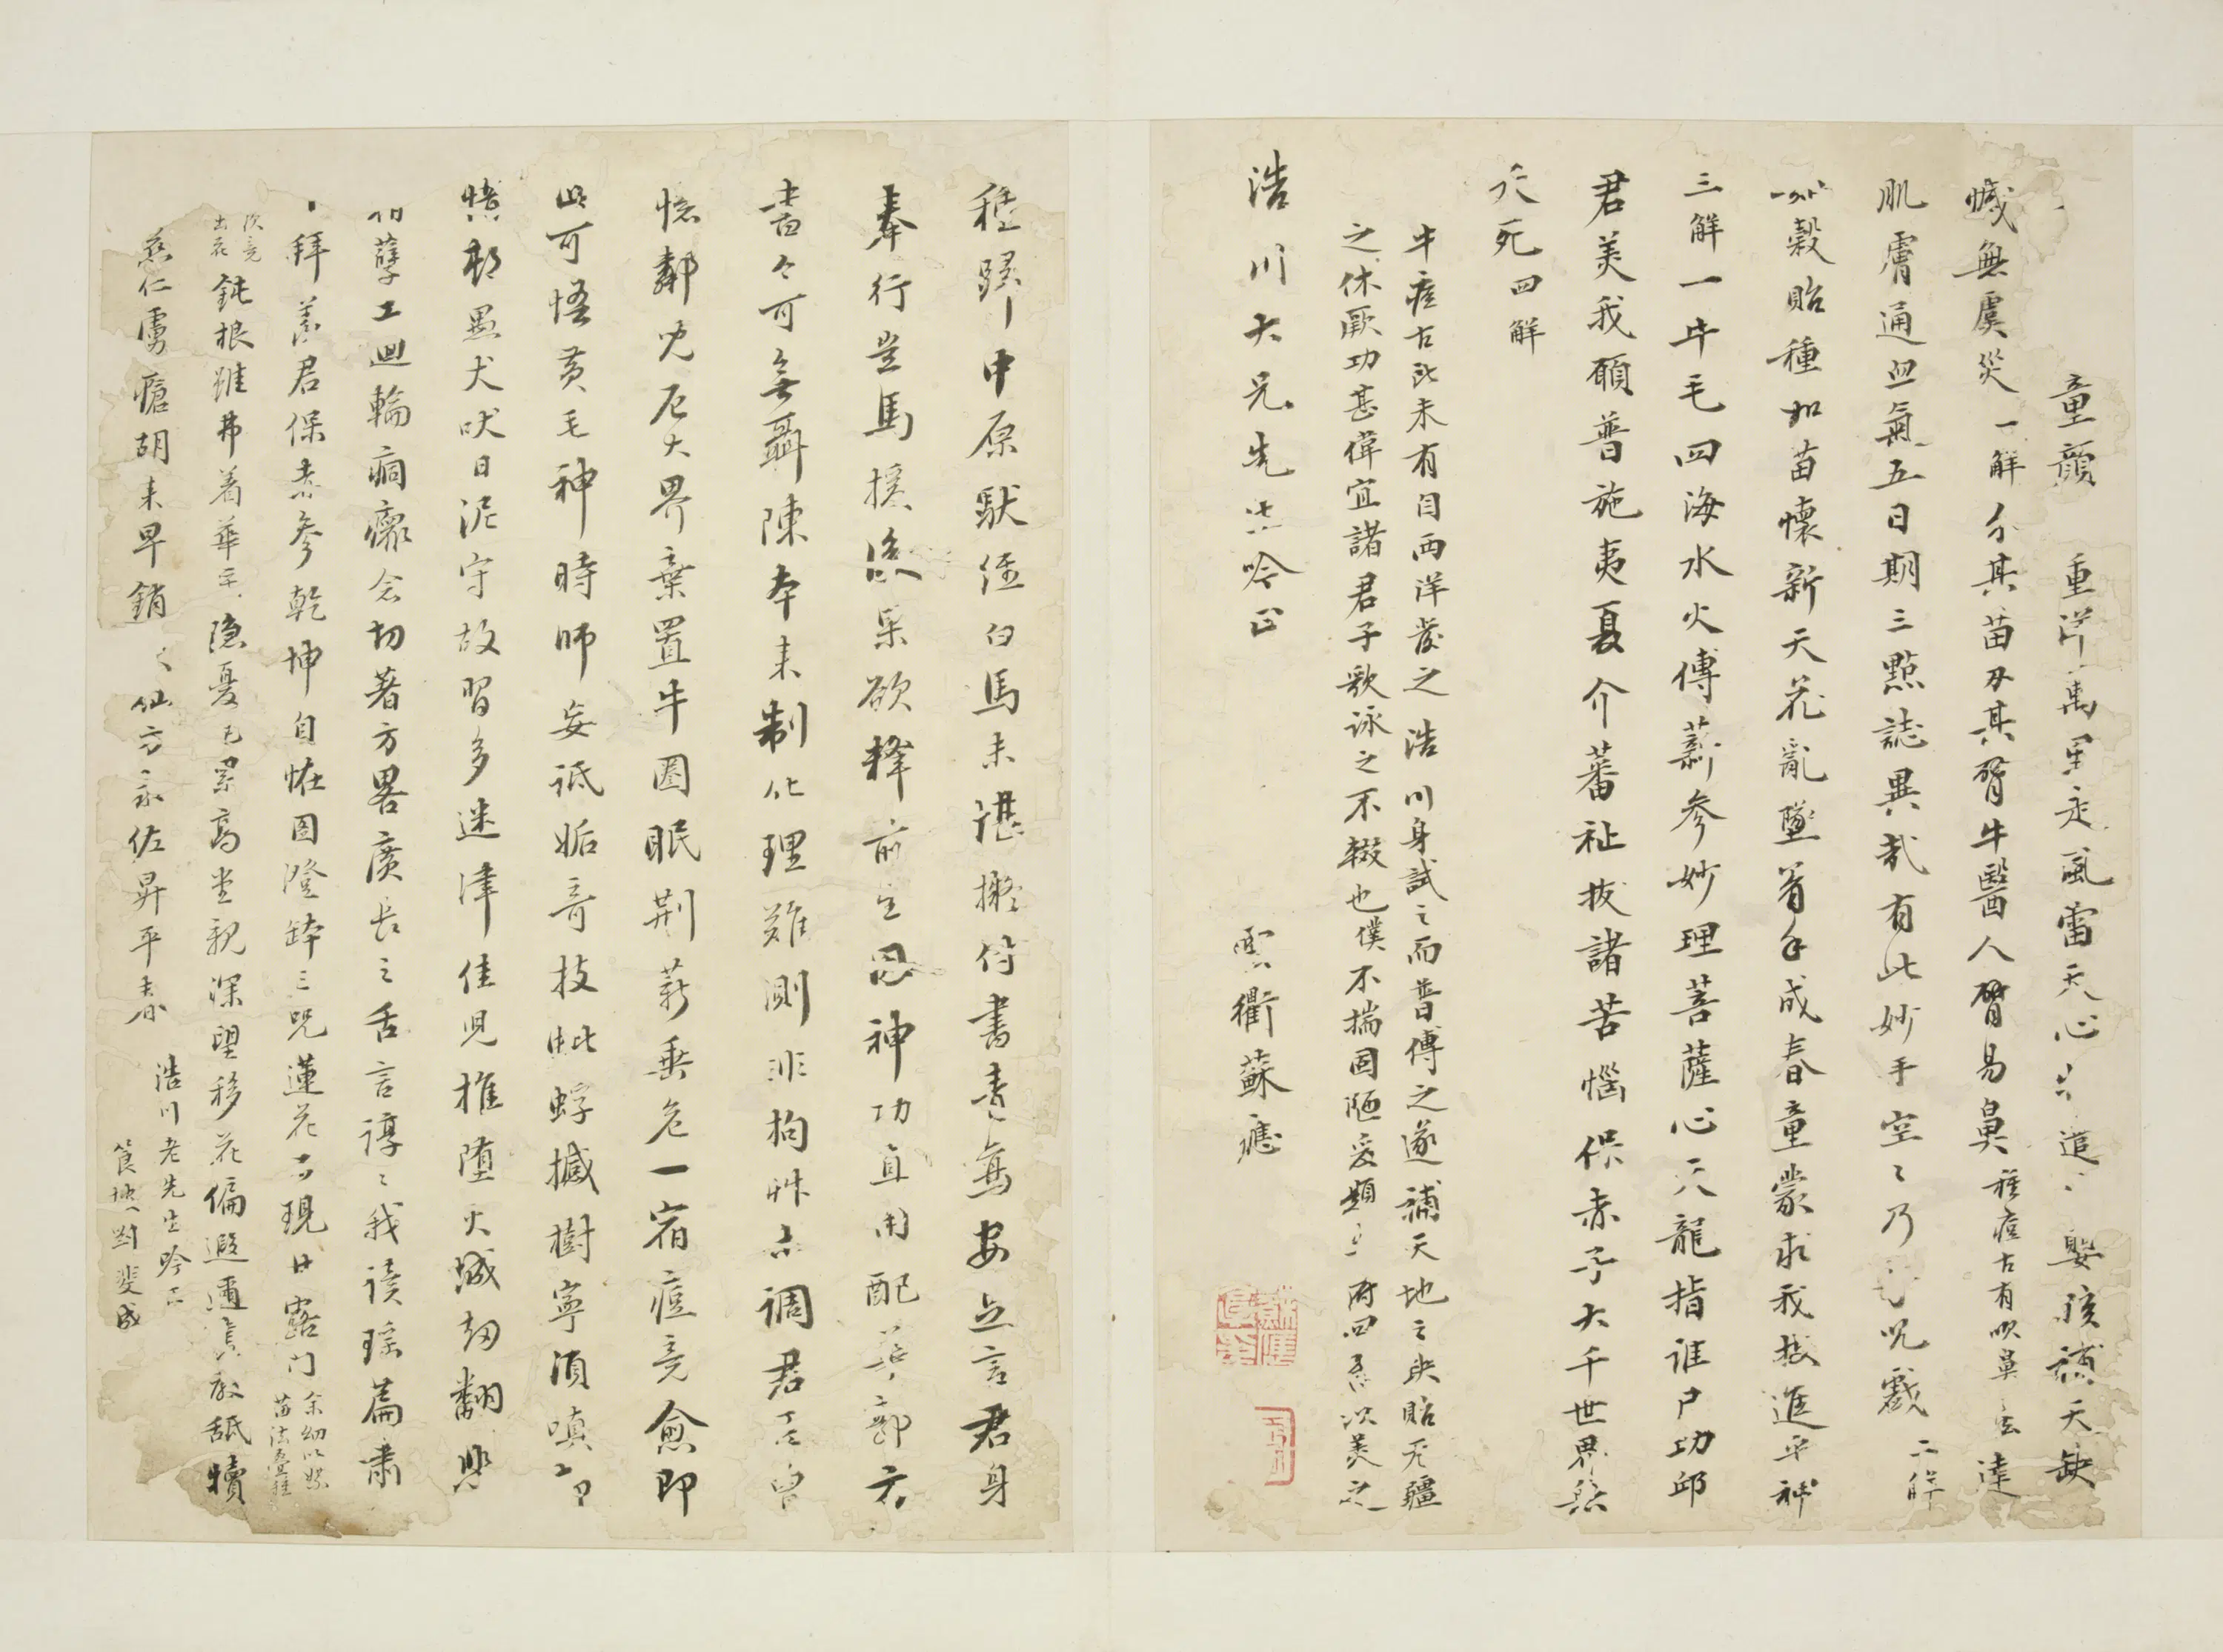 童顏 重洋萬里走風雷天心 嬰孩補天缺
憾無虞災一解 分其苗刃其臂牛醫人臂易鼻種痘古有吹鼻 達
肌膚通血氣五日期三點誌異哉有此妙手空〻乃 咒戲二解
穀貽種如苗懷新天花亂墜着手成春童蒙求我技進乎神
三解一牛毛四海水火傳薪參妙理菩薩心天龍指誰尸功邱
君美我願普施夷夏介蕃祉拔諸苦惱保赤子大千世界無
夭死四解
牛痘古所未有自西洋發之 浩川身試之而普傳之遂補天地之缺貽无疆
之休厥功甚偉宜諸君子歌詠之不輟也僕不揣固陋爰題 四系以美之
浩川大兄先生吟正
雲衢蘇應
種歸中原馱經白馬未堪擬付書青鳥安足言君身
奉行豈馬援後果欲釋前生因神功直用配 部方
書今可無聶陳本來制化理難測非拘 亦調君不曾
憶鄰兒厄大界棄置牛圈眠荆薪垂危一宿痘竟愈即
此可悟黃毛神時師妄詆妬奇技蚍蜉撼樹寧須嗔
憤郁愚犬吠日泥守故習多迷津佳兒推墮火城劫翻
孽工迴輪痌瘝念切著方畧廣長之舌言諄〻我讀瑤篇肅
拜羨君保赤參乾坤自怪圖澄鉢三咒蓮花 現甘露門余幼以 苗法 種
次竟出花 鈍根雖弗着華 隱憂已累高堂親深望移花偏遐邇 舐犢
慈仁虜瘡胡來早銷〻仙方永佐昇平春
浩川老先生吟正
篔 劉斐成